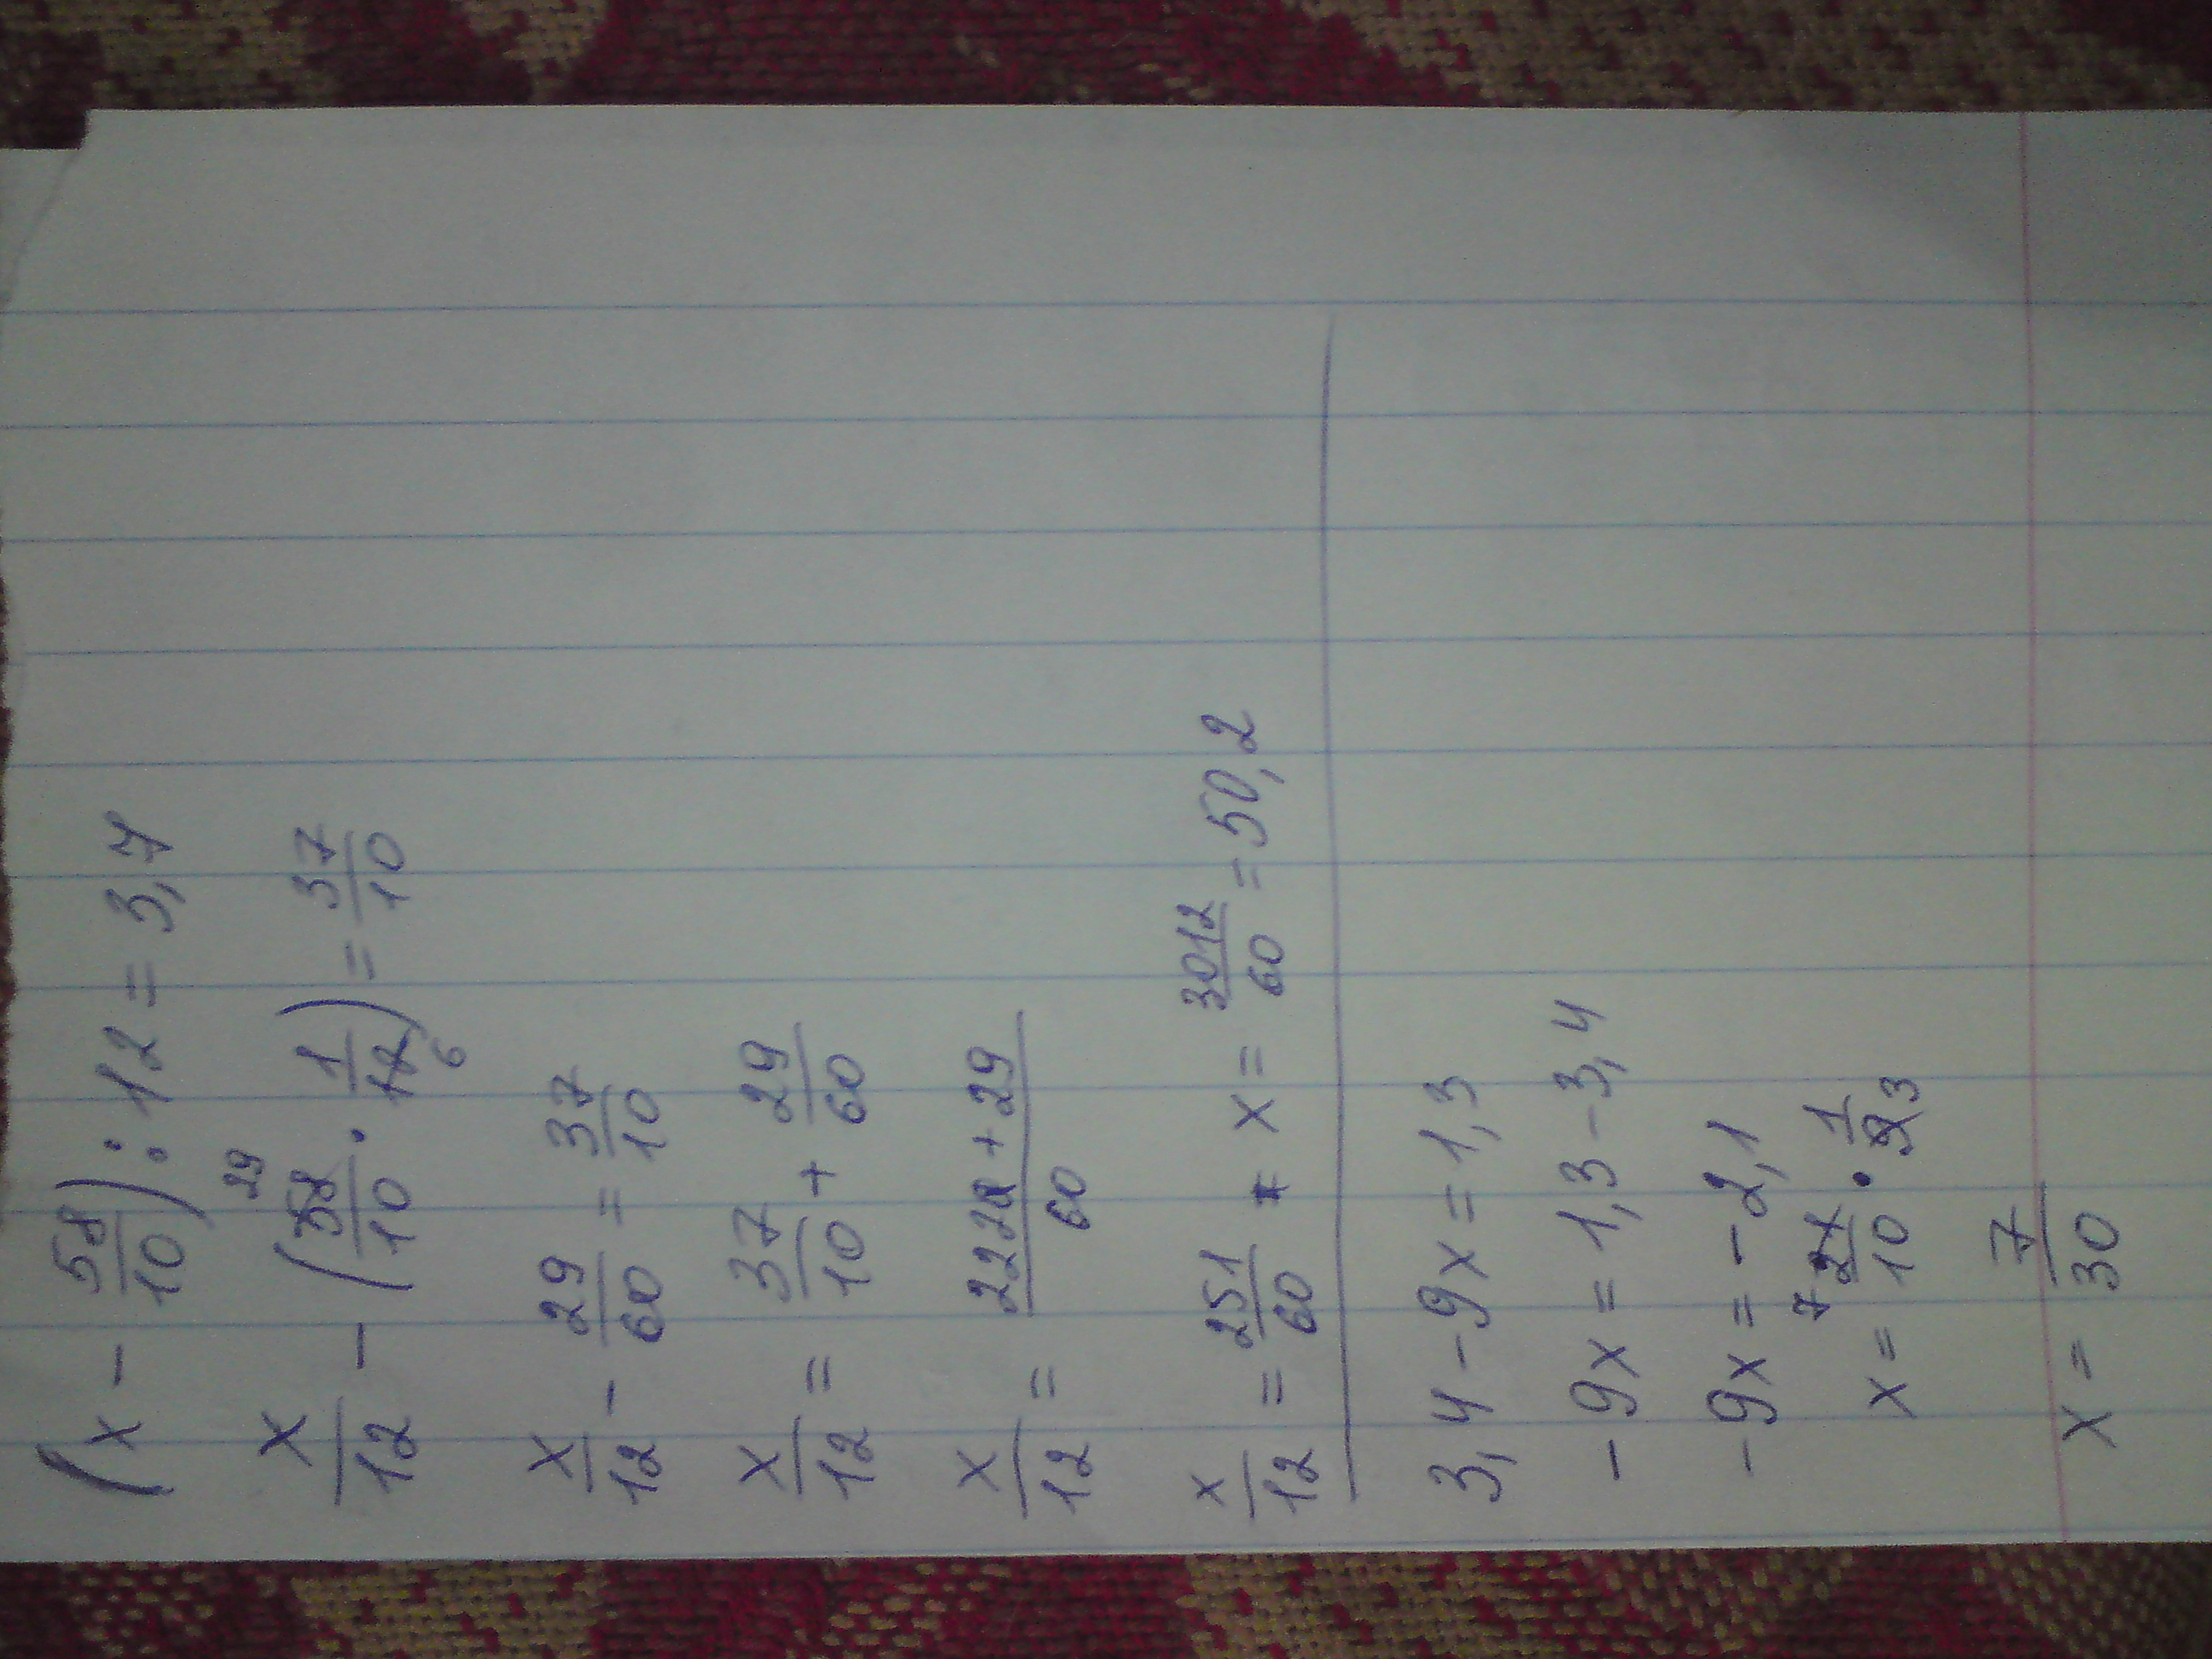 (x - 58/10) : 12 = 3,7
x/12 - (58/10 · 1/12) = 37/10
29
6
x/12 - 29/60 = 37/10
x/12 = 37/10 + 29/60
x/12 = 222 + 29/60
x/12 = 251/60 x = 3012/60 = 50,2
3,4 - 9x = 1,3
- 9x = 1,3 - 3,4
- 9x = - 2,1
x = 7 21/10 · 1/9 3
x = 7/30